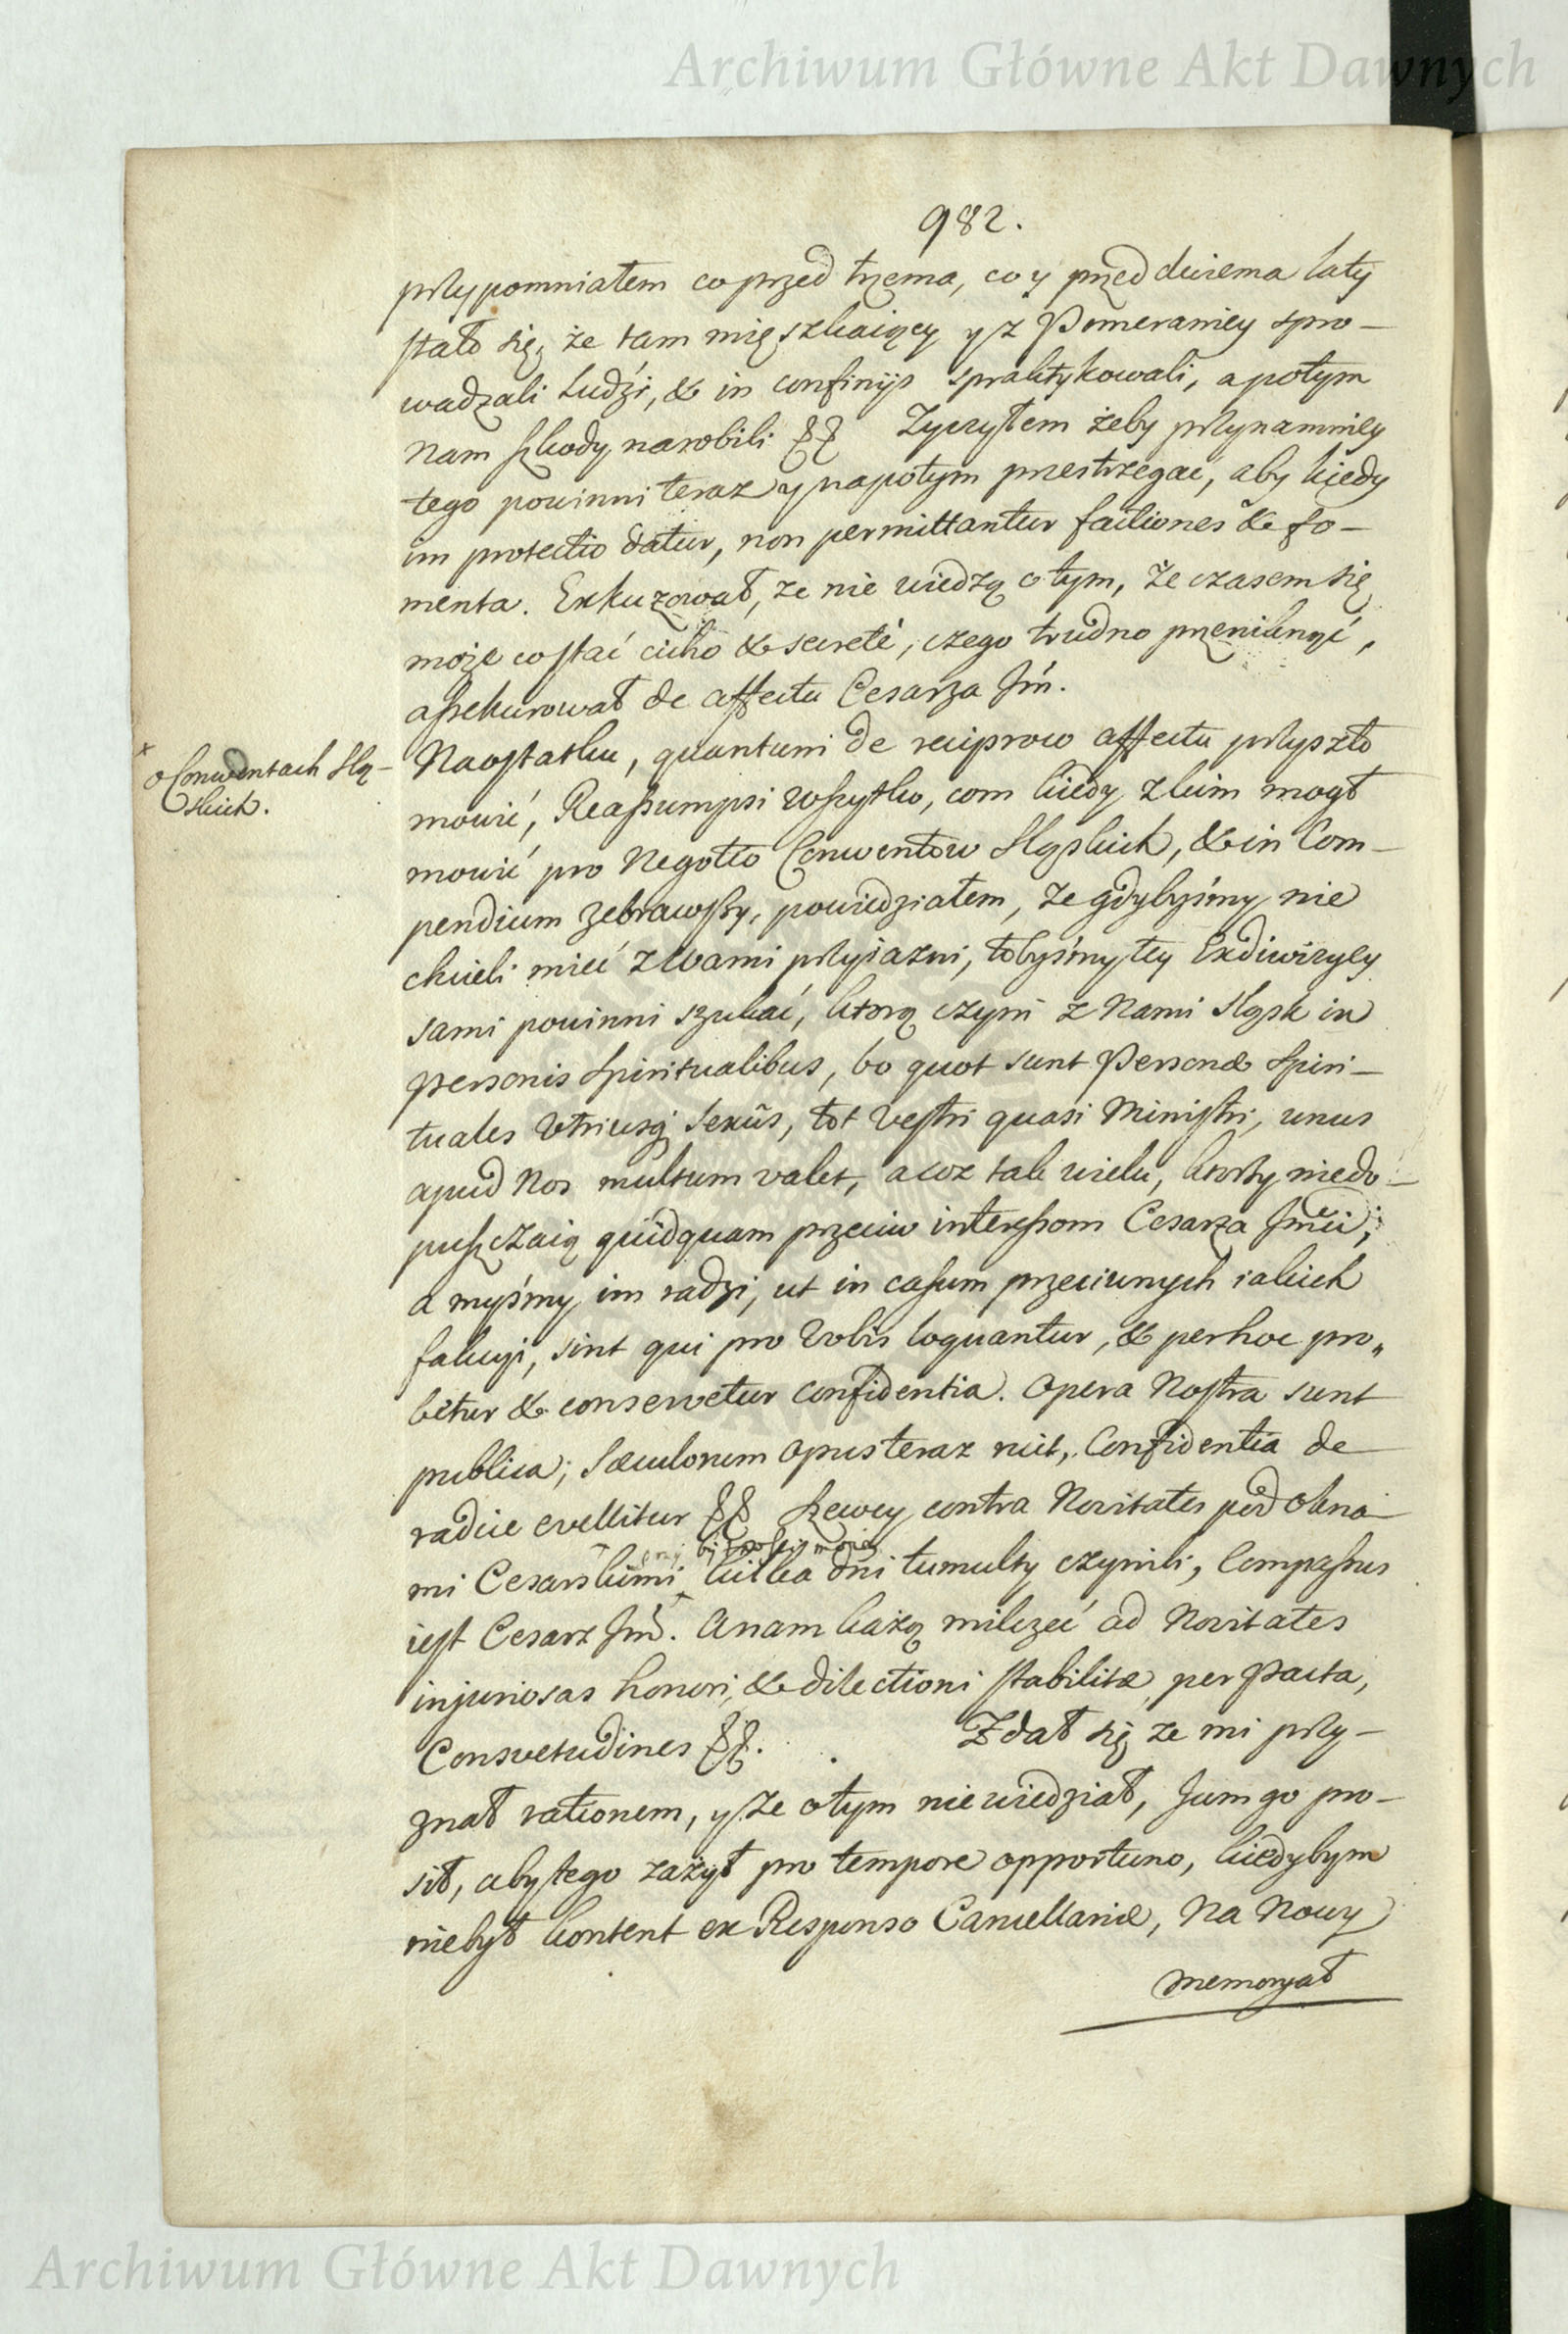 Archiwum Główne Akt Dawnych
982.
przypomniałem co przed trzema, co y przed dwiema laty
stało się, że tam mięszkaiący y z Pomeraniey spro-
wadzali Ludzi, & in confinijs spraktykowali, a potym
nam szkody narobili
Zyczyłem żeby przynamniey
tego powinni teraz y napotym przestrzegac, aby kiedy
im protectio datur, non permittantur factiones & fo-
menta. Exkuzował, że nie wiedzą o tym, że czasem się
może co stać cicho & secretè, czego trudno przeniknąć,
assekurował de affectu Cesarza Jm̃.
* o Conwentach Slą-
skich.
Naostatku, quantum de reciproco affectu przyszło
mowić, Reassumpsi wszytko, com kiedy z kim mogł
mowić pro Negotio Conwentow Sląskich, & in Com-
pendium zebrawszy, powiedziałem, że gdybyśmy nie
chcieli mieć z Wami przyiazni, tobyśmy tey
sami powinni szukać, ktorą czyni z Nami Sląsk in
personis Spiritualibus, bo quot sunt Personæ Spiri-
tuales Utriusq; Sexûs, tot Vestri quasi Ministri, unus
apud Nos multum valet, a coz tak wielu, ktorzy niedo-
puszczaią quidquam przeciw interessom Cesarza Jm̃ci,
a myśmy im radzi, ut in casum przeciwnych iakich
fakcyi, sint qui pro Vobis loquantur, & per hoc pro„
betur & conservetur confidentia. Opera Nostra sunt
publica; Sæculorum opus teraz ruit, Confidentia de
radice evellitur Szewcy contra Novitates pod okna-
mi Cesarskiemi kilka dni tumulty czynili, Compassus
iest Cesarz Jm̃. A nam każą milczeć ad Novitates
injuriosas honori, & dilectioni stabilitæ per Pacta,
Consvetudines
Zdał się że mi przy-
znał rationem, y że o tym nie wiedział, Jum go pro-
sił, aby tego zażył pro tempore opportuno, kiedybym
niebył kontent ex Responso Cancellariæ, Na Nowy
memoryał
Archiwum Główne Akt Dawnych